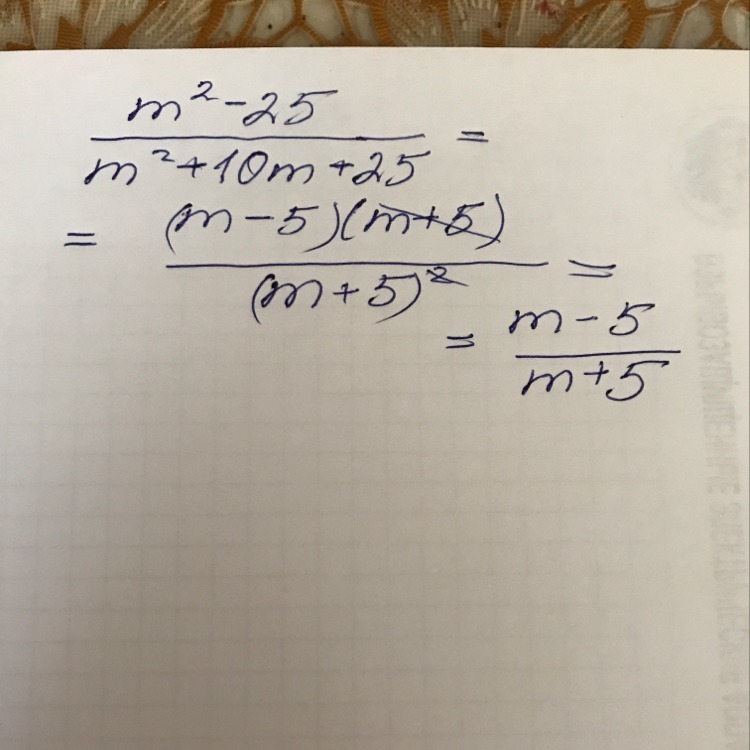 m² - 25 / m² + 10m + 25 =
= (m - 5)(m + 5) / (m + 5)² =
= m - 5 / m + 5